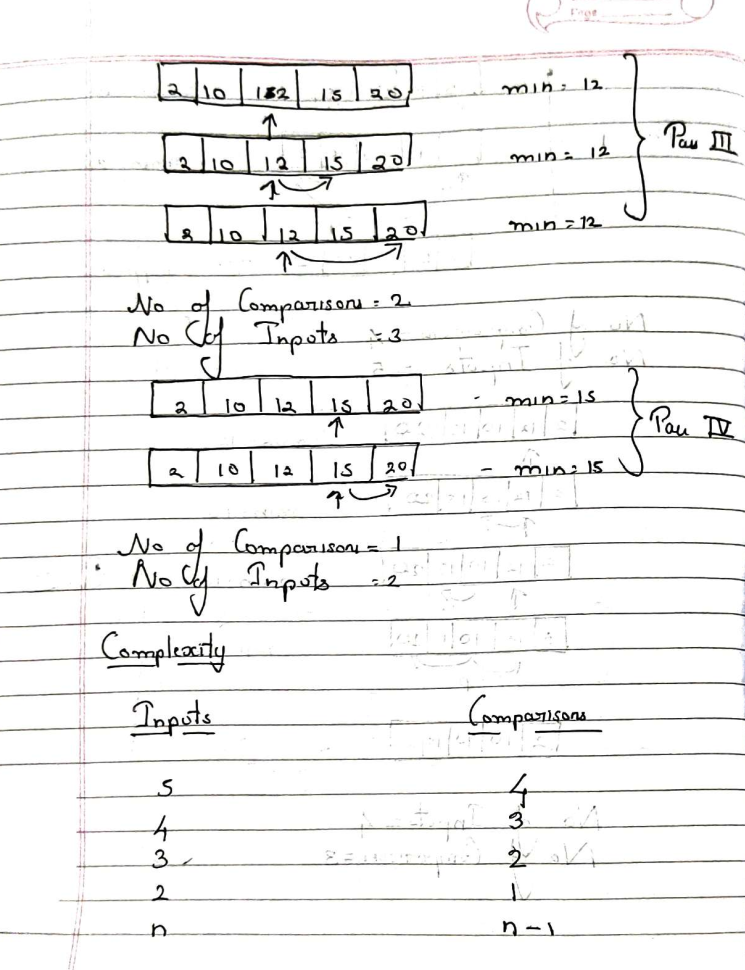 Page
2 10 12 15 20 min = 12
2 10 12 15 20 min = 12
Pass III
2 10 12 15 20 min = 12
No of Comparisons = 2
No Of Inputs = 3
2 10 12 15 20 - min = 15
Pass IV
2 10 12 15 20 - min = 15
No of Comparison = 1
No Of Inputs = 2
Complexity
Inputs Comparisons
5 4
4 3
3 2
2 1
n n-1